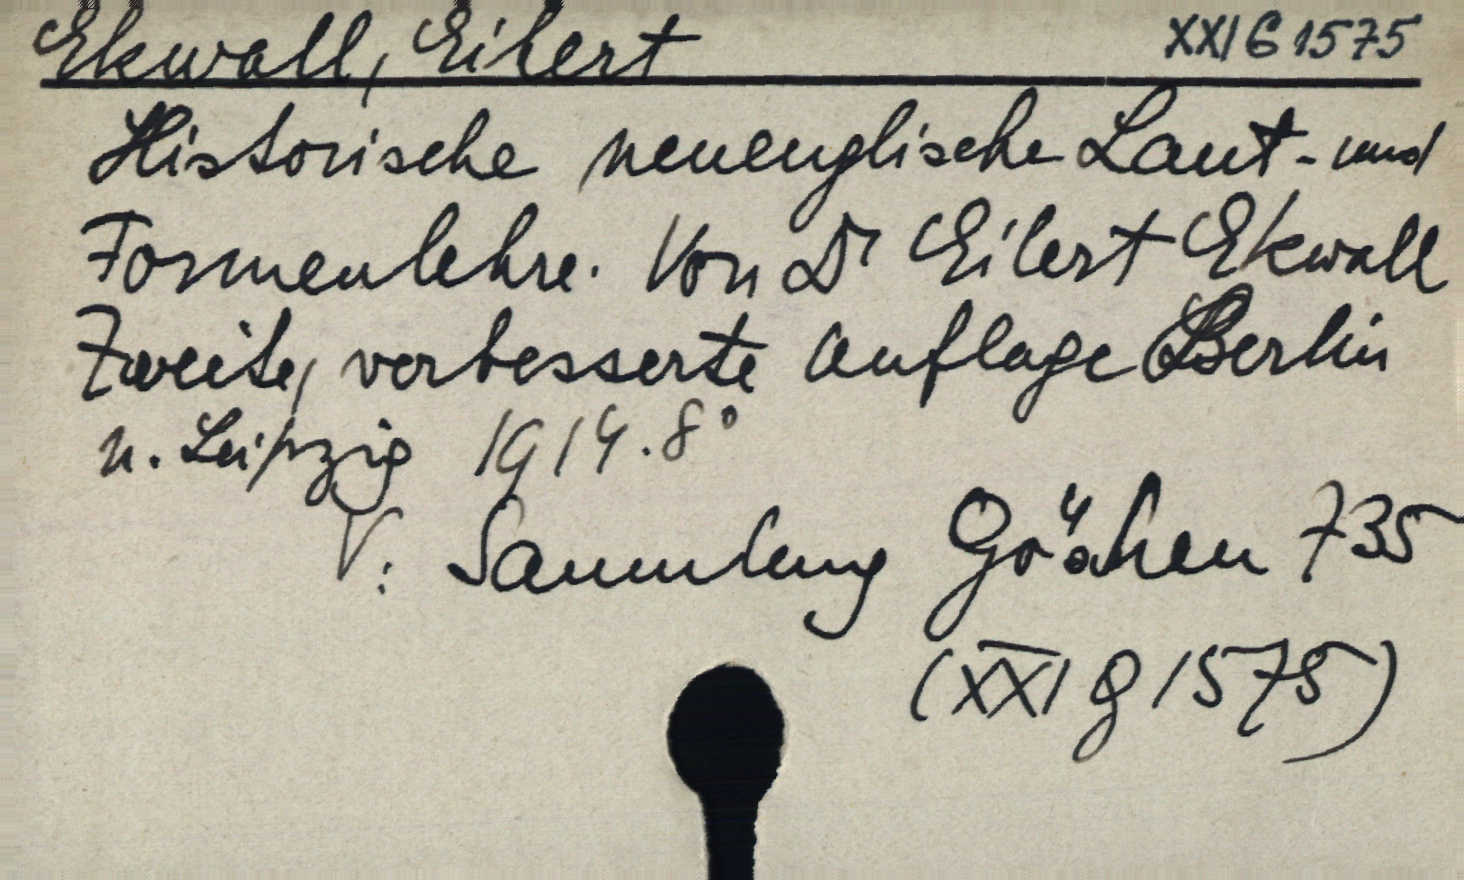 Ekwall, Eilert XXI G 1575
Historische neuenglische Laut- und
Formenlehre. Von Dr Eilert Ekwall
Zweite, verbesserte Auflage Berlin
u. Leipzig 1914. 8°
V: Sammlung Göschen 735
(XXI G 1575)